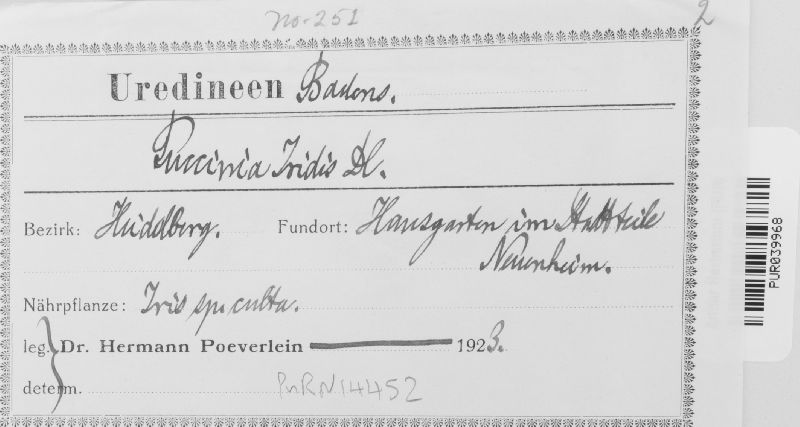 no. 251
2
Uredineen Badens.
Puccinia Iridis Dl.
Bezirk: Heidelberg. Fundort: Hausgarten im Stadtteile
Neuenheim.
Nährpflanze: Iris sp. culta.
leg. Dr. Hermann Poeverlein 1923.
determ. PURN14452
PUR039968